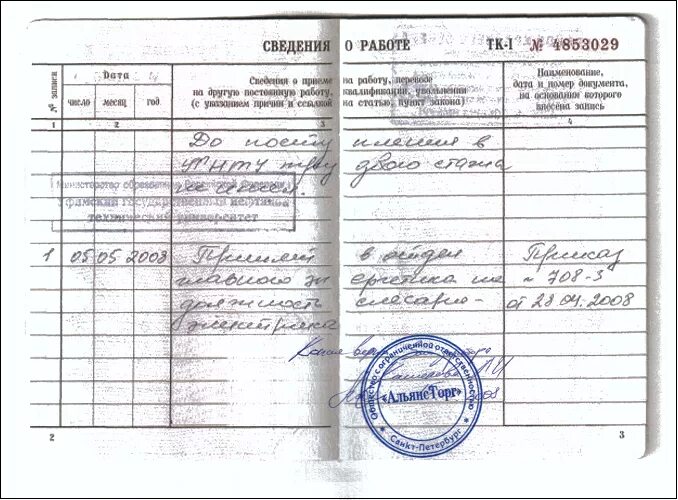 СВЕДЕНИЯ О РАБОТЕ ТК-I № 4853029
№ записи
Дата
число месяц год
Сведения о приеме на работу, переводе
на другую постоянную работу, квалификации, увольнении
(с указанием причин и ссылкой на статью, пункт закона)
Наименование,
дата и номер документа,
на основании которого
внесена запись
1 2 3 4
До поступления в
УГНТУ трудового стажа
не имел.
Министерство образования
Уфимский государственный нефтяной
технический университет
1 05 05 2008 Принят в отдел Приказ
главного энергетика на № 708-3
должность слесаря- от 28.04.2008
электрика
Копия верна
Общество с ограниченной ответственностью
«АльянсТорг»
* Санкт-Петербург *
2 3